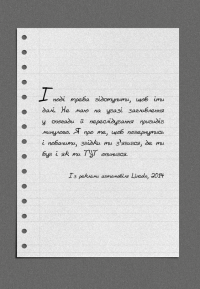 Іноді треба відступити, щоб іти
далі. Не маю на увазі заглиблення
у спогади й переслідування привидів
минулого. А про те, щоб повернутись
і побачити, звідки ти з'явився, де ти
був і як ти ТУТ опинився.
Із реклами автомобіля Lincoln, 2014